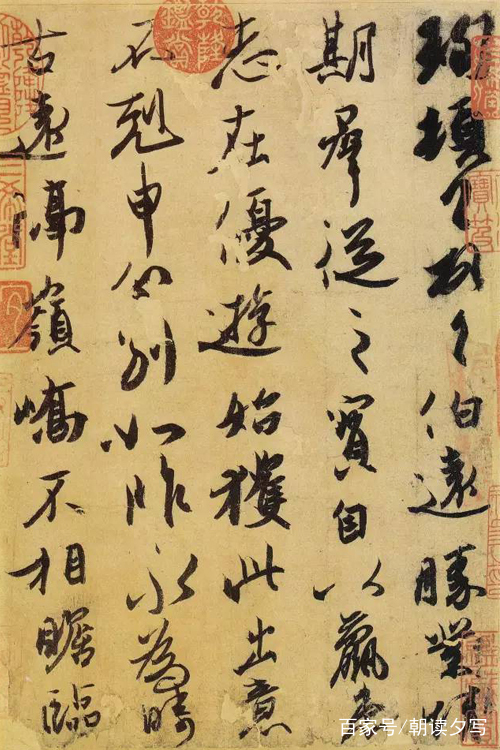 珣頓首頓首伯遠勝業情
期羣從之寶自以羸患
志在優遊始獲此出意
不剋申分別如昨永為疇
古遠隔嶺嶠不相瞻臨
乾隆鑑賞
百家号/朝读夕写